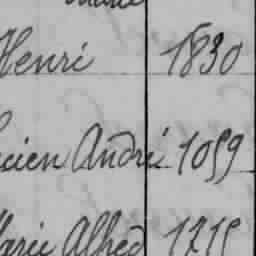 Henri 1830
cien André 1059
arie Alfred 1215